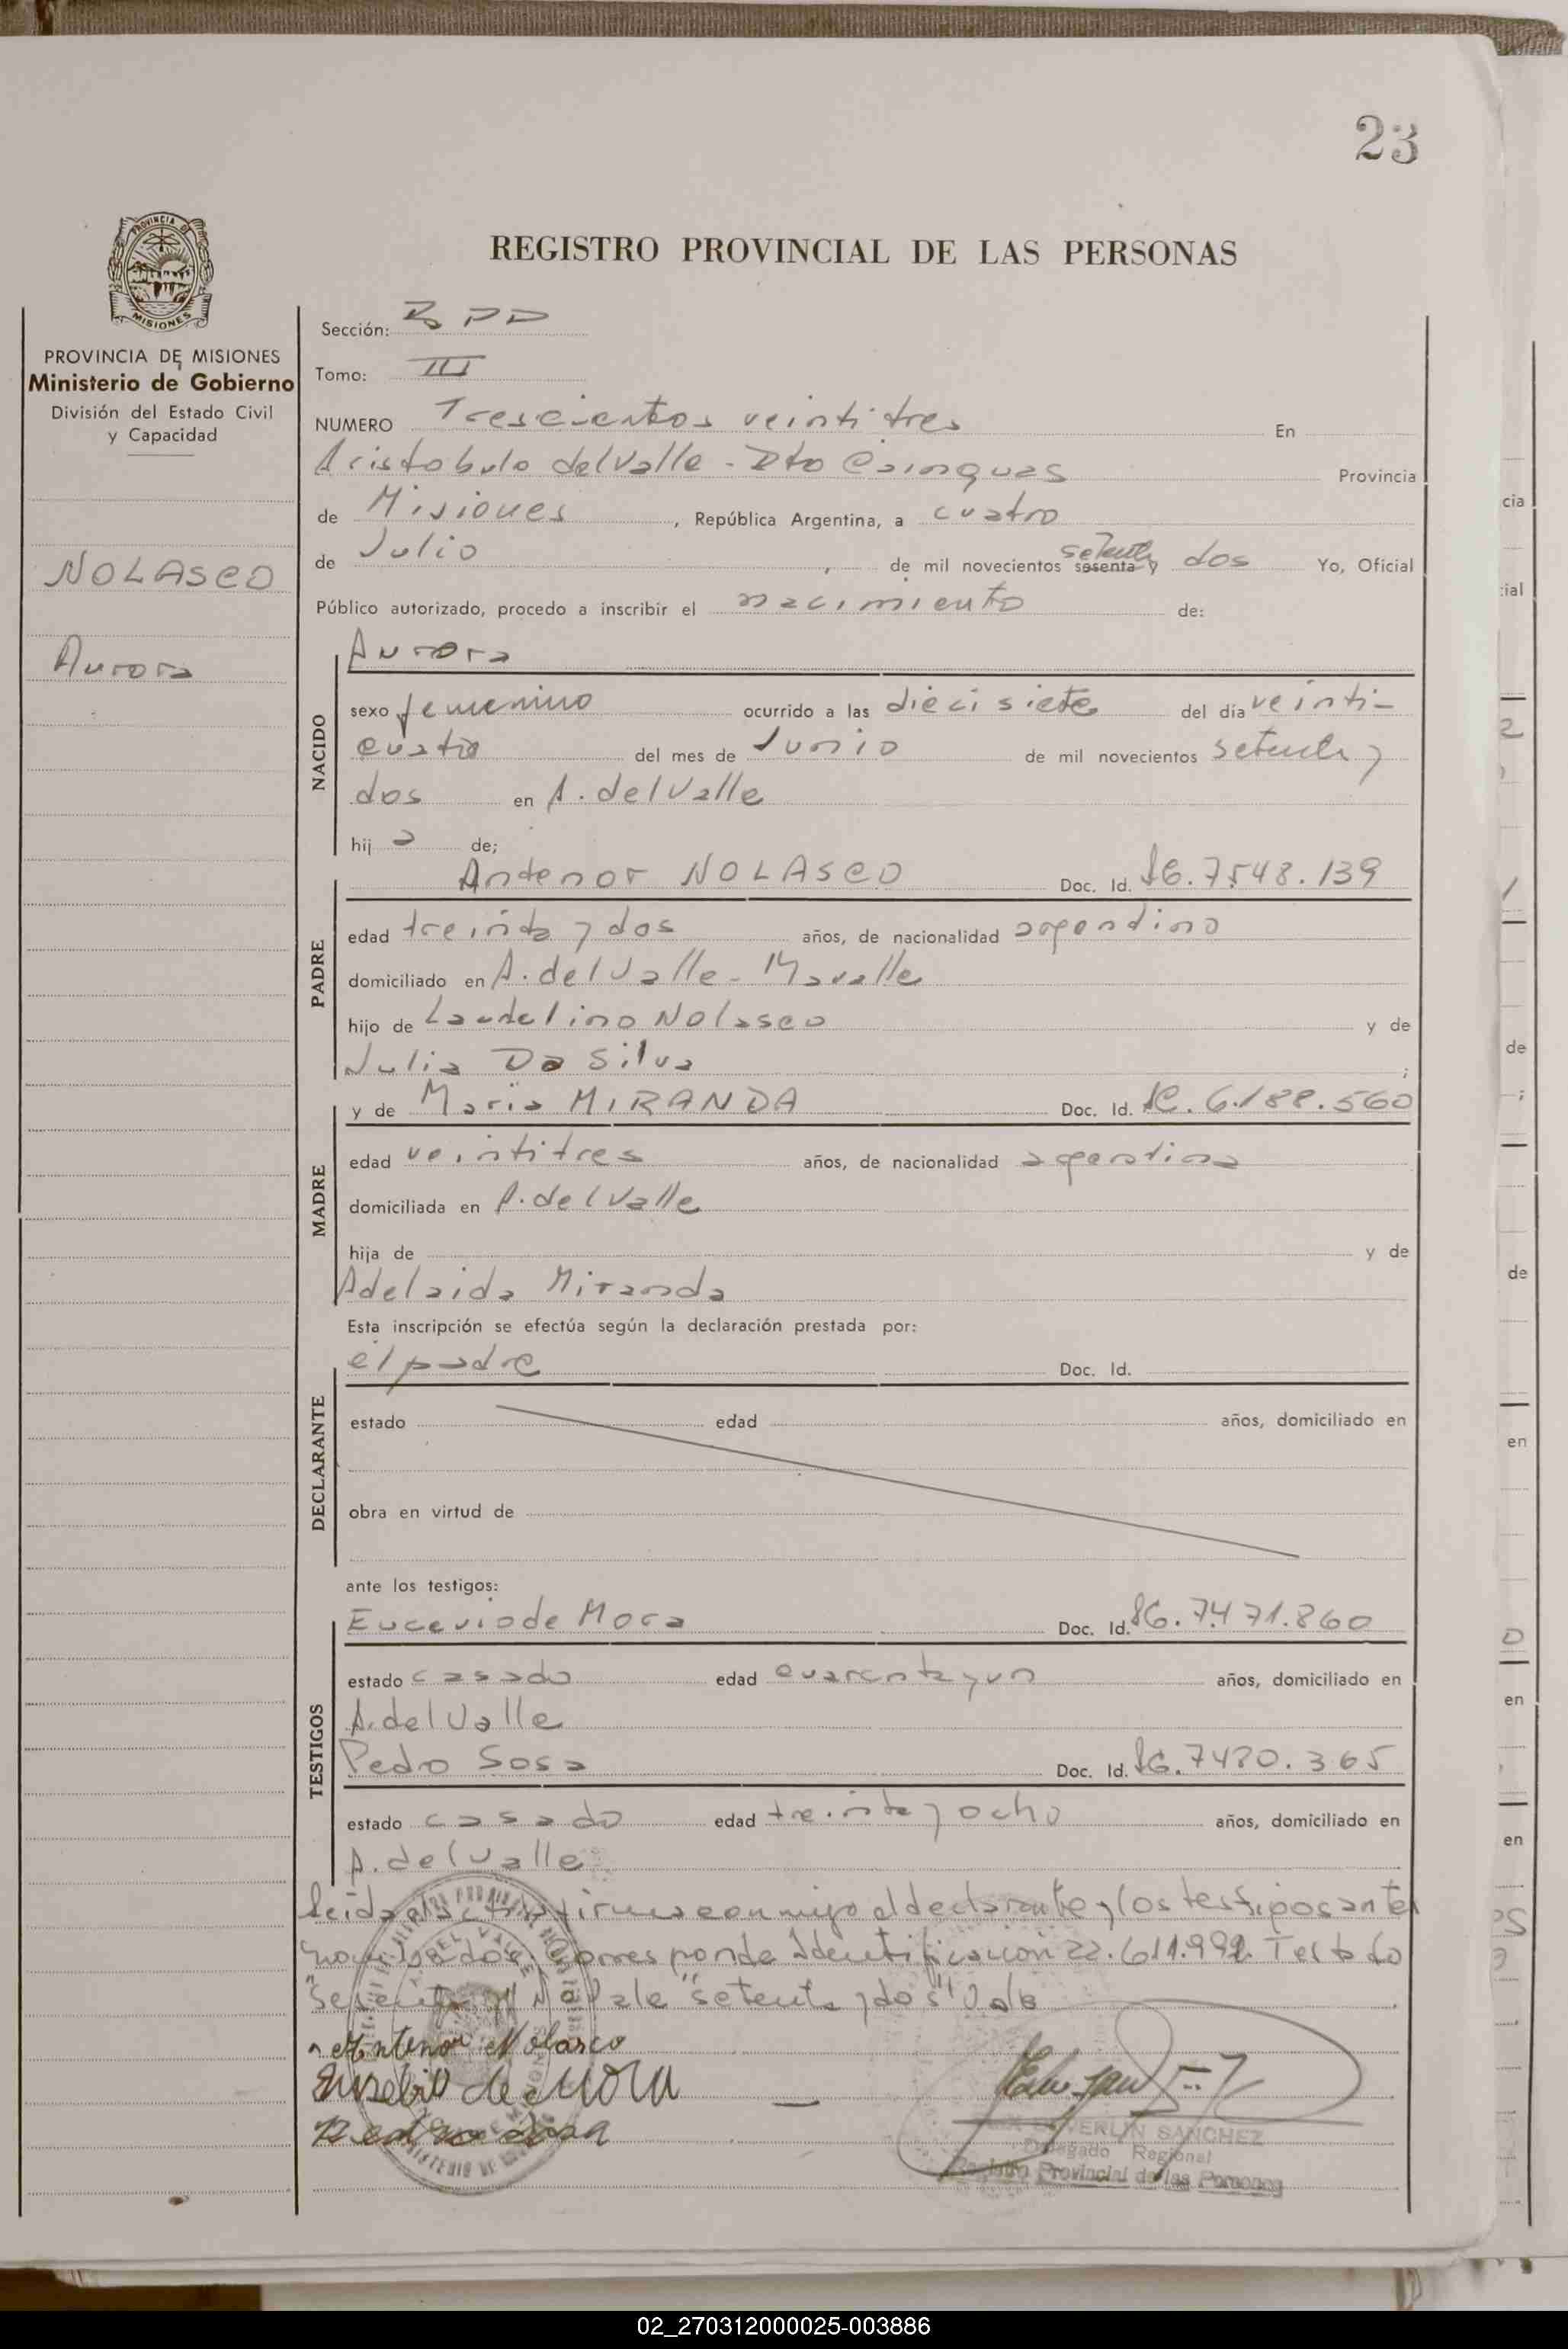 23
REGISTRO PROVINCIAL DE LAS PERSONAS
PROVINCIA DE MISIONES
Ministerio de Gobierno
División del Estado Civil
y Capacidad
NOLASCO
Aurora
Sección:
Tomo: III
NUMERO Trescientos veintitres En
Aristobulo del Valle - Dto Cainguas Provincia
de Misiones, República Argentina, a cuatro
de Julio, de mil novecientos sesenta y setenta y dos Yo, Oficial
Público autorizado, procedo a inscribir el nacimiento de:
NACIDO
Aurora
sexo femenino ocurrido a las diecisiete del día veinti-
cuatro del mes de Junio de mil novecientos setenta y
dos en A. del Valle
hij a de;
PADRE
Antenor NOLASCO Doc. Id. 7.548.139
edad treinta y dos años, de nacionalidad argentino
domiciliado en A. del Valle -
hijo de Laudelino Nolasco y de
Julia Da Silva ;
MADRE
y de Maria MIRANDA Doc. Id. 6.188.560
edad veintitres años, de nacionalidad argentina
domiciliada en A. del Valle
hija de y de
Adelaida Miranda
Esta inscripción se efectúa según la declaración prestada por:
DECLARANTE
el padre Doc. Id.
estado edad años, domiciliado en
obra en virtud de
ante los testigos:
TESTIGOS
Eucevio de Mora Doc. Id. 7.471.860
estado casado edad cuarenta y un años, domiciliado en
A. del Valle
Pedro Sosa Doc. Id. 7480.365
estado casado edad treinta y ocho años, domiciliado en
A. del Valle
Leida el acta firman conmigo el declarante y los testigos ante
nombrados. Corresponde Identificacion 22.611.992. Testado
"sesenta y" No Vale "setenta y dos" Vale
Antenor Nolasco
Eusebio de Mora
Pedro Sosa
SANCHEZ
Delegado Regional
Registro Provincial de las Personas
02_270312000025-003886